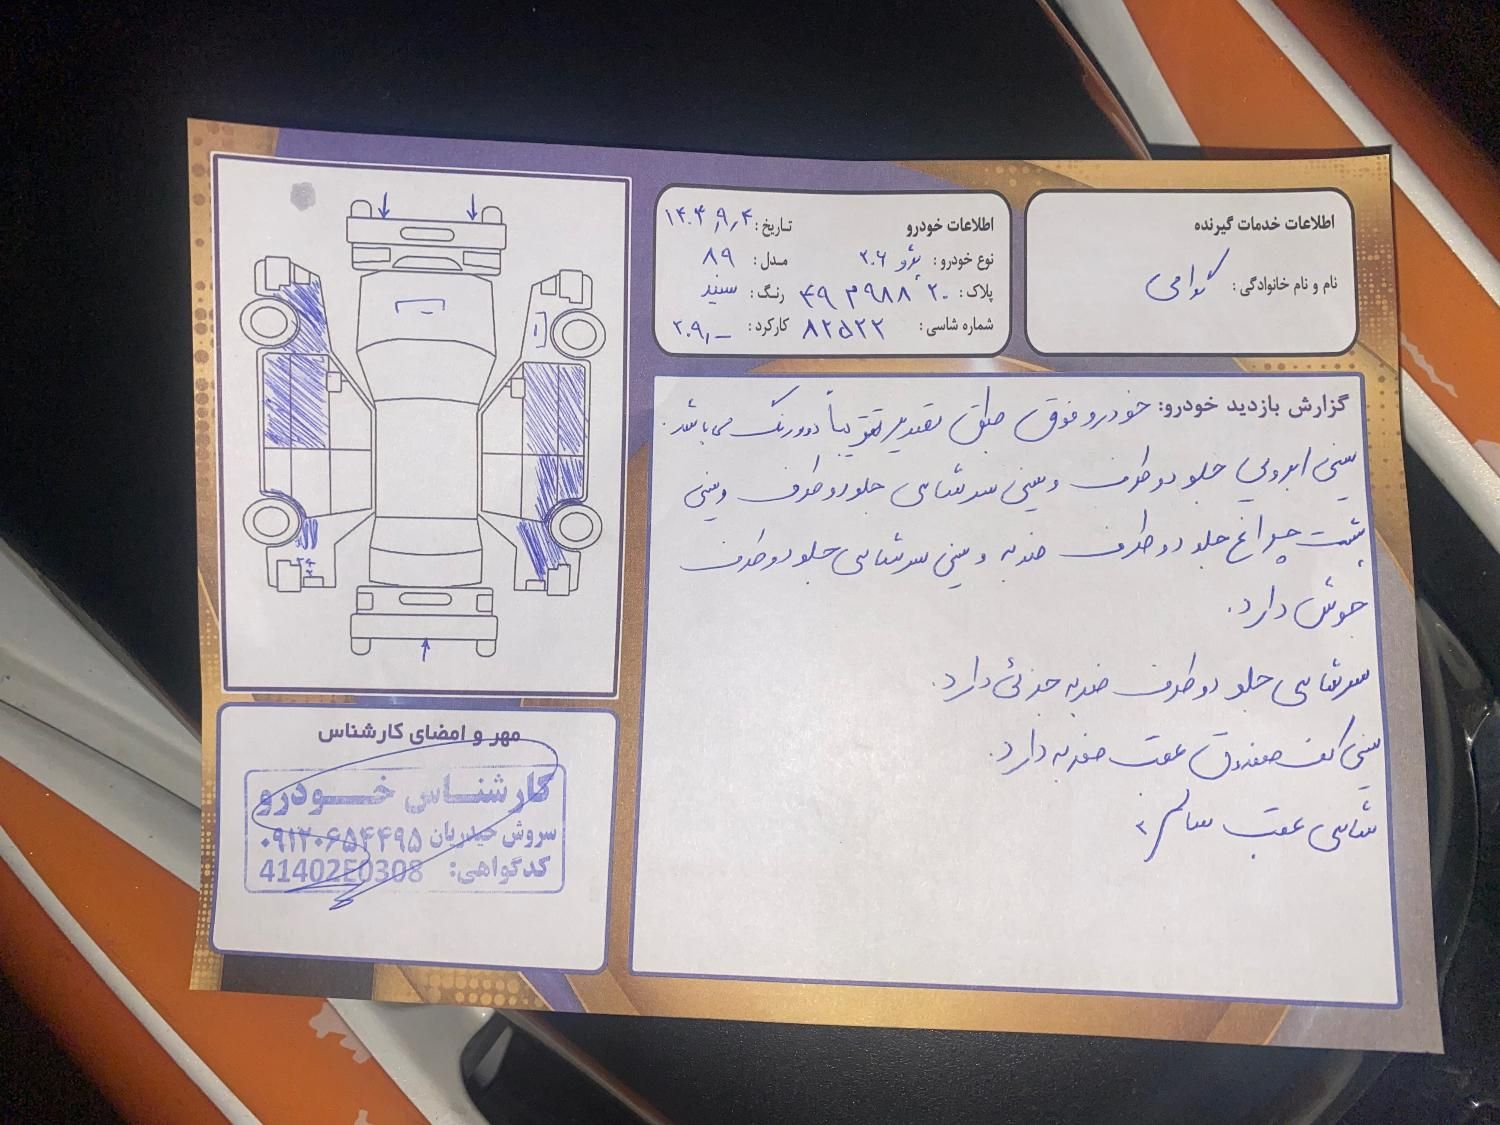 اطلاعات خدمات گیرنده
نام و نام خانوادگی: گرامی
اطلاعات خودرو
تاریخ: ۱۴۰۴٫۹٫۴
نوع خودرو: پژو ۲۰۶
مدل: ۸۹
پلاک: ۲۰ ۹۸۸ م ۴۹
رنگ: سفید
شماره شاسی: ۸۲۵۲۲
کارکرد: ۲۰۹٫_
گزارش بازدید خودرو: خودرو فوق طبق تصویر تقریباً دور رنگ می باشد.
سینی ابرویی جلو دو طرف و سینی سرشاسی جلو دو طرف و سینی
پشت چراغ جلو دو طرف ضربه و سینی سرشاسی جلو دو طرف
جوش دارد.
سرشاسی جلو دو طرف ضربه جزئی دارد.
سینی کف صندوق عقب ضربه دارد.
شاسی عقب سالم
مهر و امضای کارشناس
کارشناس خودرو
سروش حیدریان ۰۹۱۲۰۶۵۴۴۹۵
کد گواهی: 41402E0308